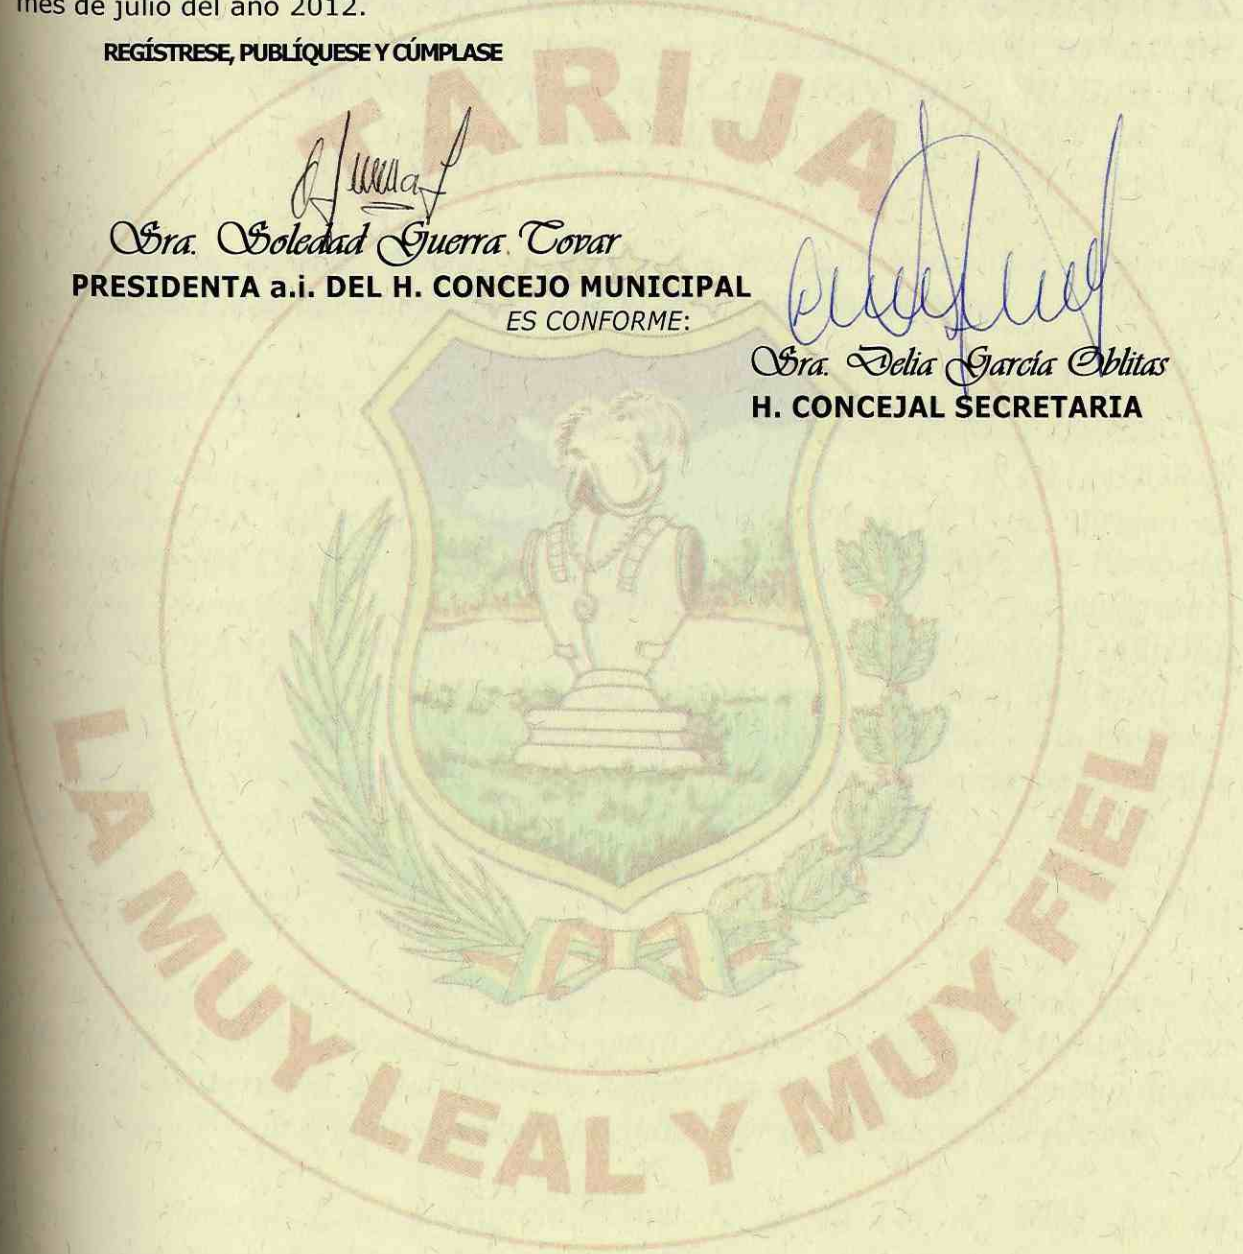 mes de julio del año 2012.
REGÍSTRESE, PUBLÍQUESE Y CÚMPLASE
Sra. Soledad Guerra Tovar
PRESIDENTA a.i. DEL H. CONCEJO MUNICIPAL
ES CONFORME:
Sra. Delia García Oblitas
H. CONCEJAL SECRETARIA
TARIJA
LA MUY LEAL Y MUY FIEL